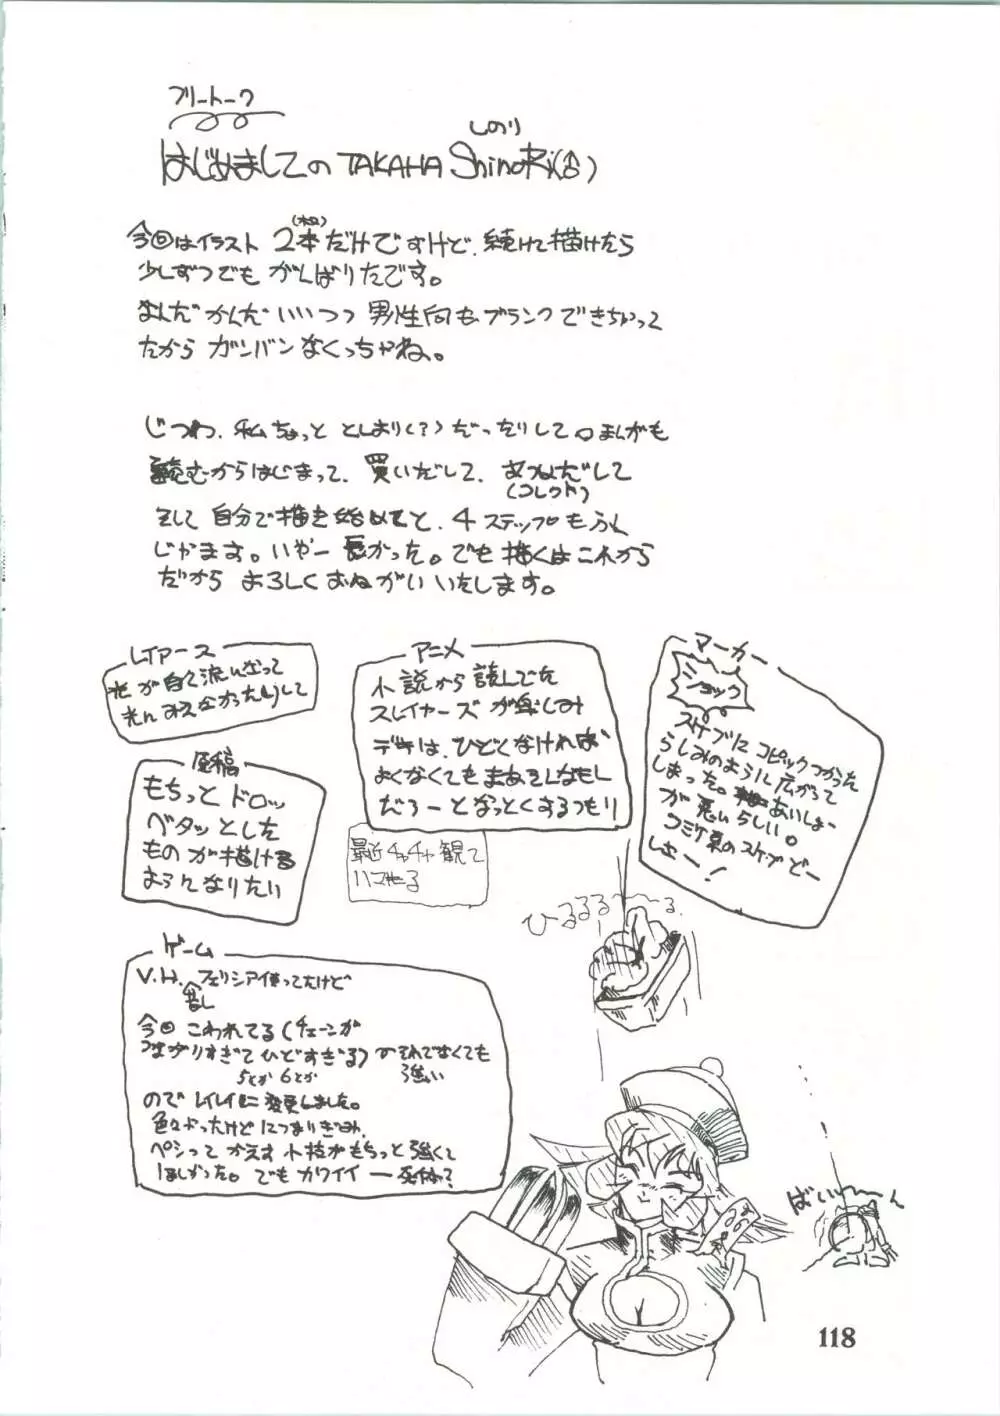 フリートーク
しのり
はじめましての TAKAHA ShinoRi(合)
(枚)
今回はイラスト 2本だけですけど、続けて描けたら
少しずつでも がんばりたいです。
なんだかんだいいつつ 男性向もブランクできちゃって
だから ガンバンなくっちゃね。
じつわ、私ちょっと としより(?)だったりして。まんがも
読むからはじまって、買いだして、あつめだして
(コレクト)
そして 自分で描き始めてと、4ステップもふん
じゃます。いやー長かった。でも描くはこれから
だから よろしくおねがいいたします。
レイアース
光が白く流になって
光んみえなかったりして
アニメ
小説から読んでた
スレイヤーズが楽しみ
デキは、ひどくなければ
よくなくても まあそんなもん
だろーとなっとくするつもり
マーカー
ショック
スケブに コピックつかったら
らしみのように広がって
しまった。あいしょー
が悪いらしい。
コミケ京のスケブどー
しよー!
原稿
もちっと ドロッ
ベタッとした
ものが描ける
ようになりたい
最近チャチャ観て
ハマせる
ひるるる〜〜る
ゲーム
V.H. フェリシア使ってたけど
昔し
今回 こわれてる(チェーンが
つながりすぎてひどすぎる) のそれでなくても
5とか6とか 強い
ので レイレイに 変更しました。
色々よったけど につまりぎみ。
ペシってかえす小技がもちっと強くて
ほしかった。でもカワイイー死体?
ばい〜〜ん
118